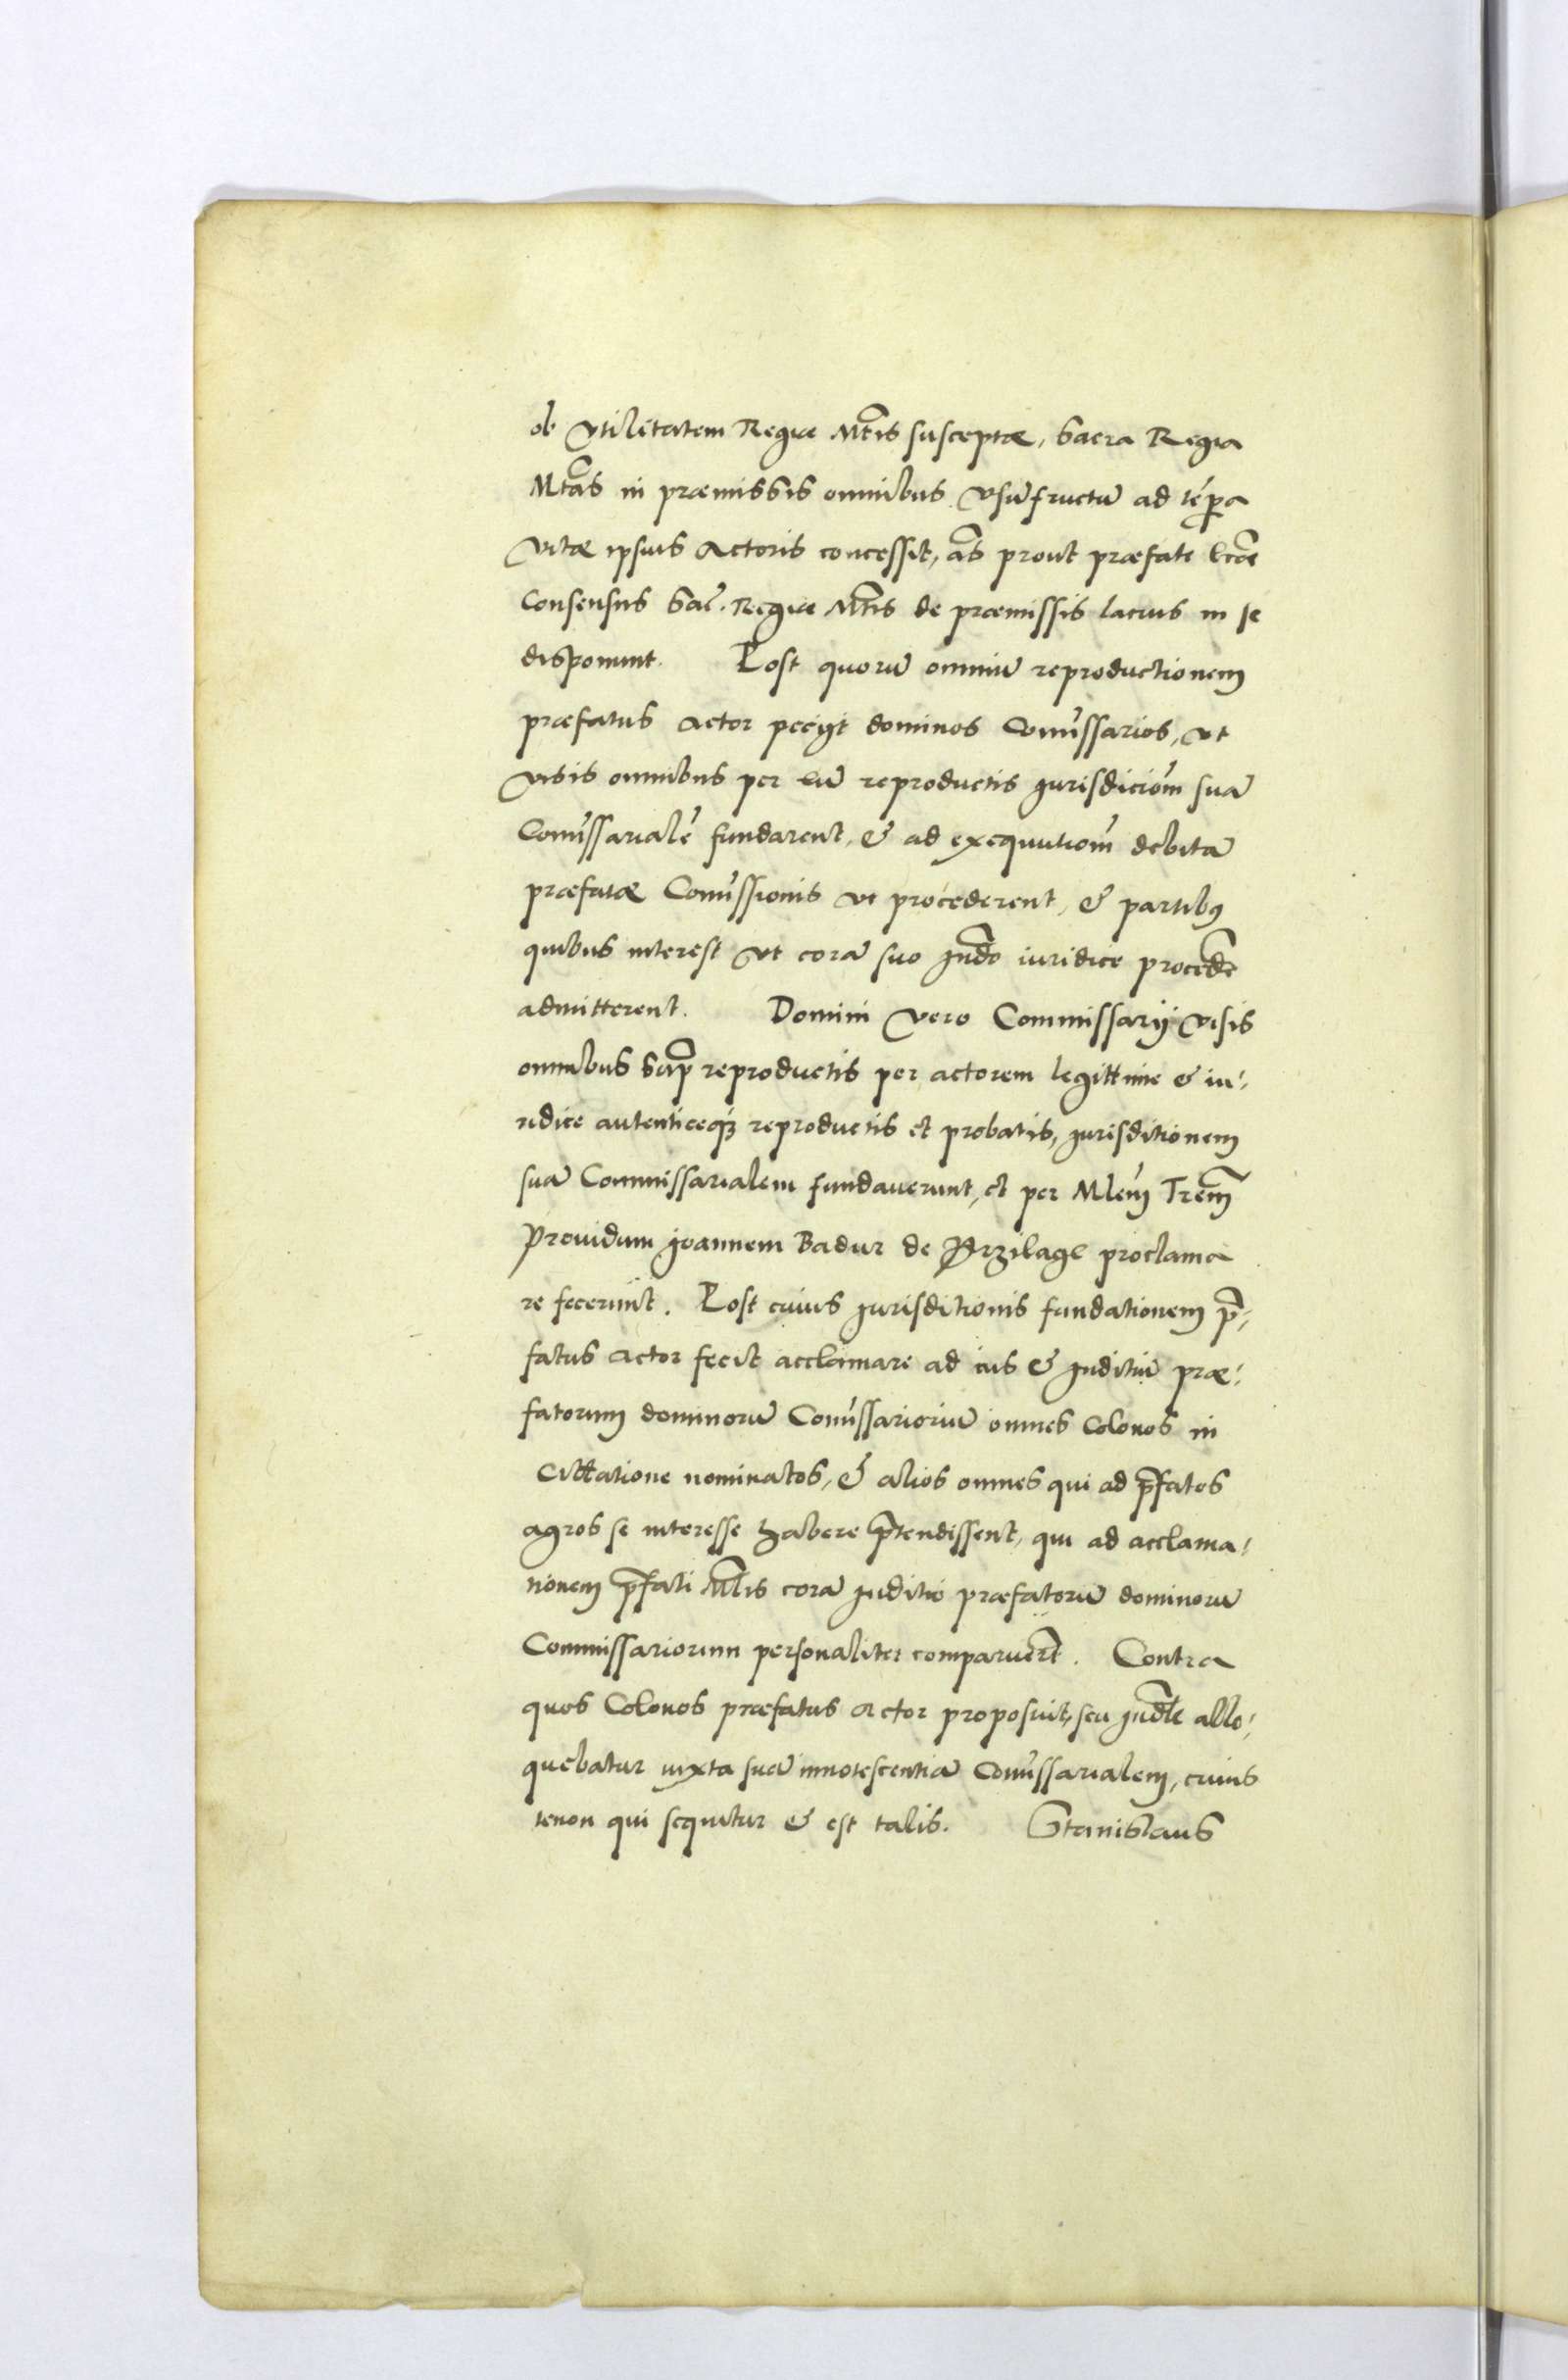 ob vtilitatem Regiæ Mtis susceptæ, Sacra Regia
Mtas in præmissis omnibus vsufructũ ad tẽpora
vitæ ipsius Actoris concessit, prout præfate lræ
Consensus Sac. Regiæ Mtis de præmissis latius in se
disponunt. Post quorũ omniũ reproductionem
præfatus Actor peciit dominos Comissarios, vt
visis omnibus per eũ reproductis Jurisdiciom̃ suã
Com̃issarialẽ fundarent, & ad exequutiom̃ debitã
præfatæ Com̃issionis vt procederent, & partibus
quibus interest vt corã suo Judo iuridice procedẽ
admitterent. Domini vero Commissarij visis
omnibus sup̃ reproductis per actorem legittime & iu-
ridice autenticeq3 reproductis et probatis, Jurisditionem
suã Commissarialem fundaverunt, et per Mlem̃ Trem̃
Prouidum Joannem Badur de Przilagk proclama
re fecerunt. Post cuius Jurisditionis fundationem p̃-
fatus Actor fecit acclamare ad ius & Juditiũ præ-
fatorum dominorũ Com̃issariorũ omnes Colonos in
Cittatione nominatos, & alios omnes qui ad p̃fatos
agros se interesse habere p̃tendissent, qui ad acclama-
tionem p̃fati Mlis corã Juditio præfatorũ dominorũ
Commissariorum personaliter comparuert̃. Contra
quos Colonos præfatus Actor proposuit, seu Judle allo-
quebatur iuxta suã innotescentiã Com̃issarialem, cuius
tenon qui sequitur & est talis. Stanislaus